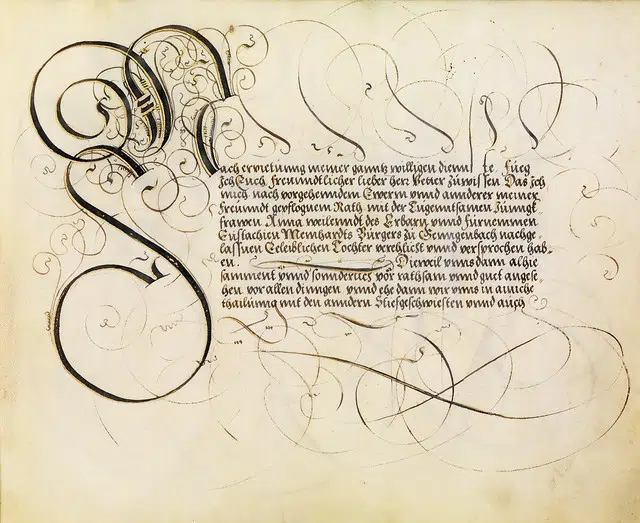 Nach erbietung meiner gantz willigen dienste. Fueg
Ich Euch freundtlicher lieber herr Vetter zuwissen Das Ich
mich nach vorgehenndem Ewerm vnnd annderer meiner
Freundt gepflognem Rath mit der Tugentsamen Junngk
frawen Anna weilenndt des Erbarn vnnd fürnemmen
Eustachien Meinhardts Burgers zu Genngenbach nachge
lassnen Eeleiblichen Tochter verehlicht vnnd versprochen hab-
en. Dieweil vnns dann alhie
samment vnnd sonnderlich vor rathsam vnnd guet angese
hen vor allen dinngen vnnd ehe dann wir vnns in ainiche
thailunng mit den anndern Stiefgeschwisten vnnd auch